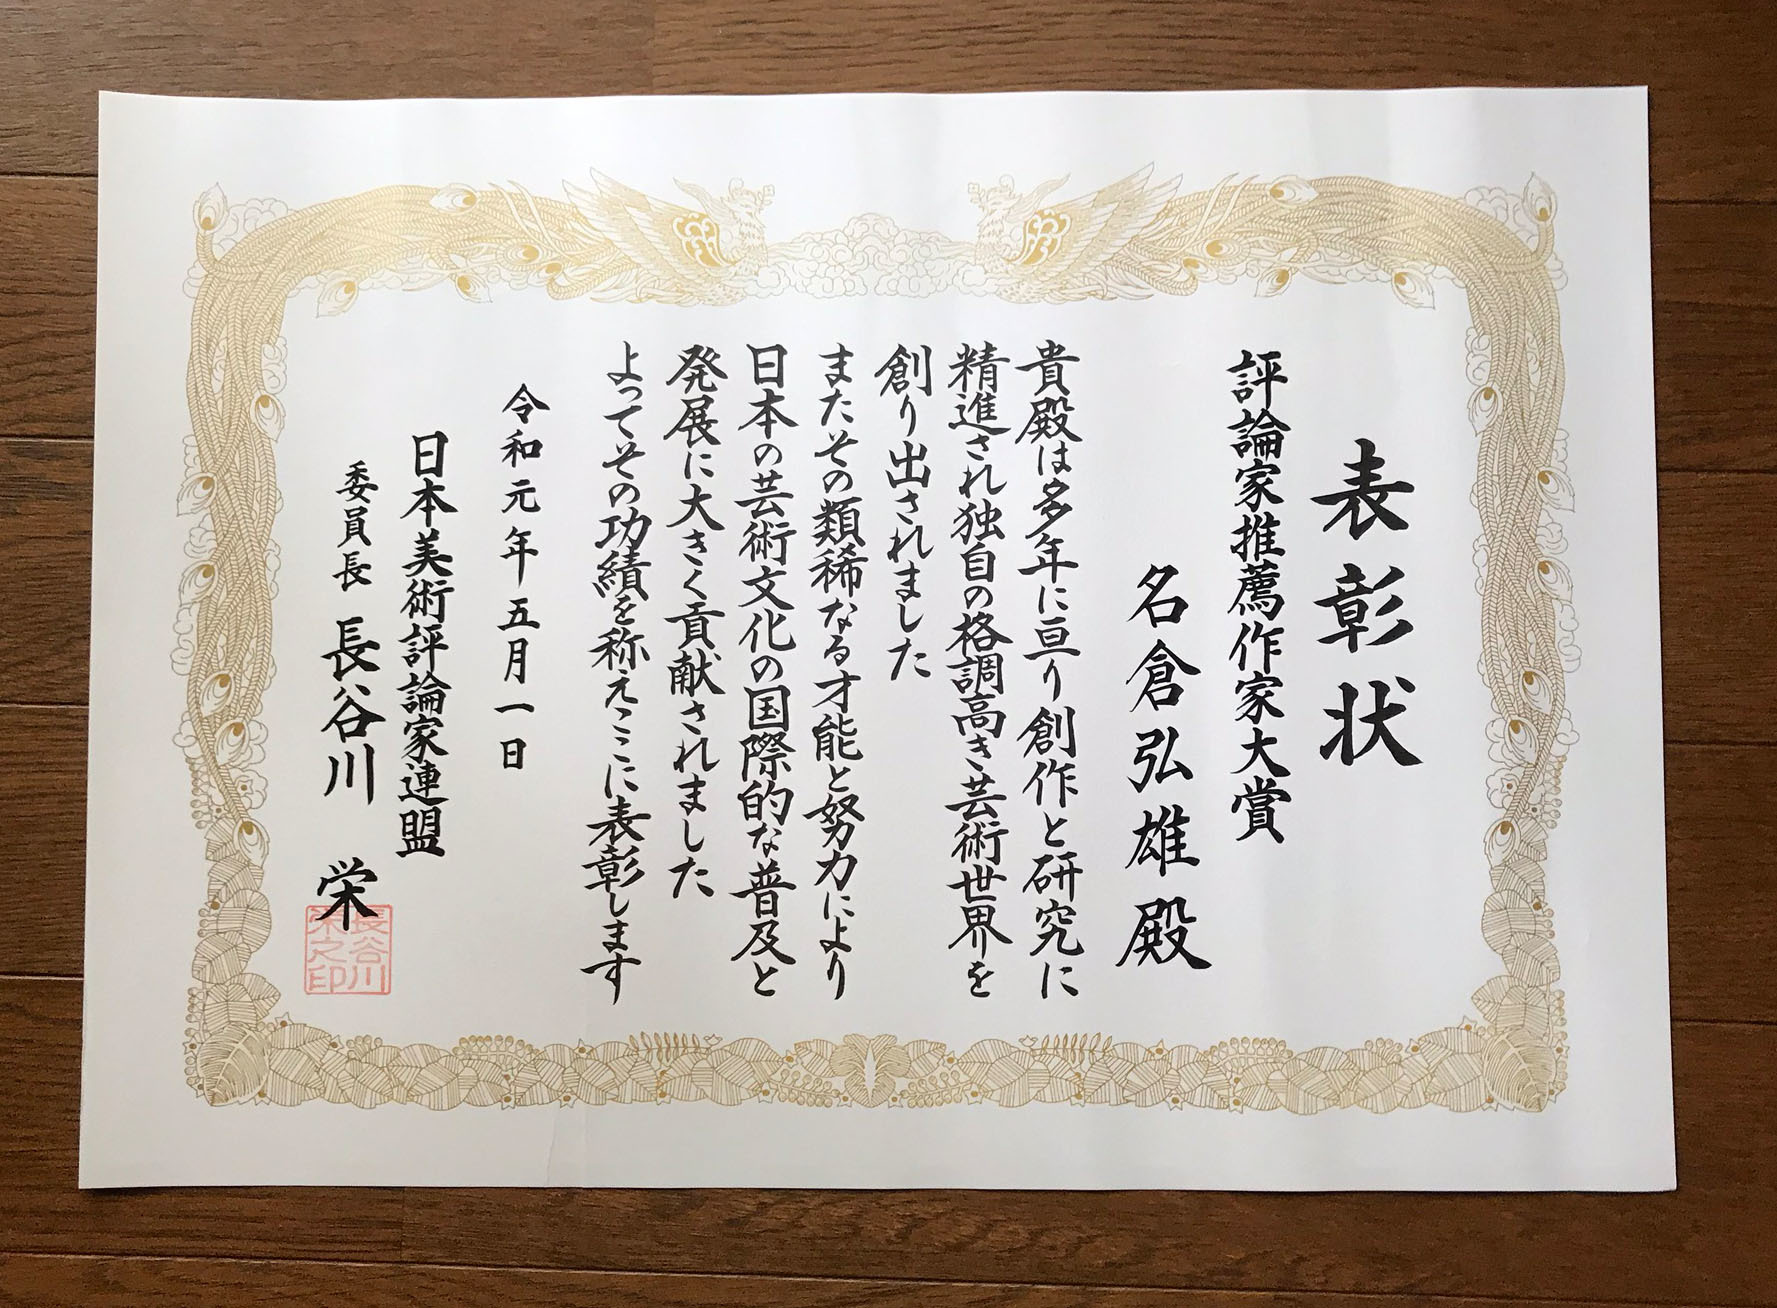 表彰状
評論家推薦作家大賞
名倉弘雄殿
貴殿は多年に亘り創作と研究に
精進され独自の格調高き芸術世界を
創り出されました
またその類稀なる才能と努力により
日本の芸術文化の国際的な普及と
発展に大きく貢献されました
よってその功績を称えここに表彰します
令和元年五月一日
日本美術評論家連盟
委員長 長谷川 栄
長谷川
栄之印